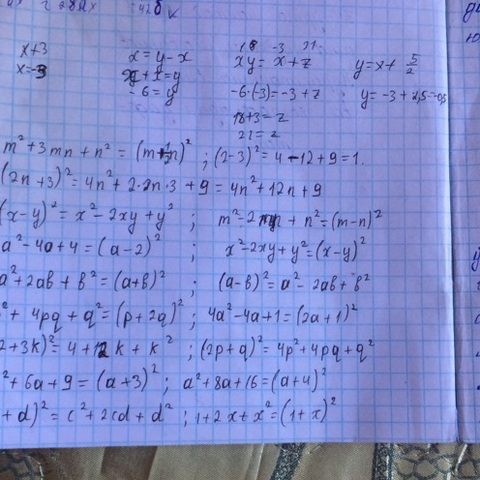 x+3
x=-3
x = y - x
x + x = y
-6 = y
18 -3 21
xy = x + z
-6·(-3) = -3 + z
18+3 = z
21 = z
y = x + 5/2
y = -3 + 2,5 = -0,5
m² + 3mn + n² = (m n)² ; (2-3)² = 4 - 12 + 9 = 1.
(2n+3)² = 4n² + 2·2n·3 + 9 = 4n² + 12n + 9
(x-y)² = x² - 2xy + y² ; m² - 2mn + n² = (m-n)²
a² - 4a + 4 = (a-2)² ; x² - 2xy + y² = (x-y)²
a² + 2ab + b² = (a+b)² ; (a-b)² = a² - 2ab + b²
² + 4pq + q² = (p+2q)² ; 4a² - 4a + 1 = (2a+1)²
2+3k)² = 4 + 12k + k² ; (2p+q)² = 4p² + 4pq + q²
² + 6a + 9 = (a+3)² ; a² + 8a + 16 = (a+4)²
+ d)² = c² + 2cd + d² ; 1 + 2x + x² = (1+x)²